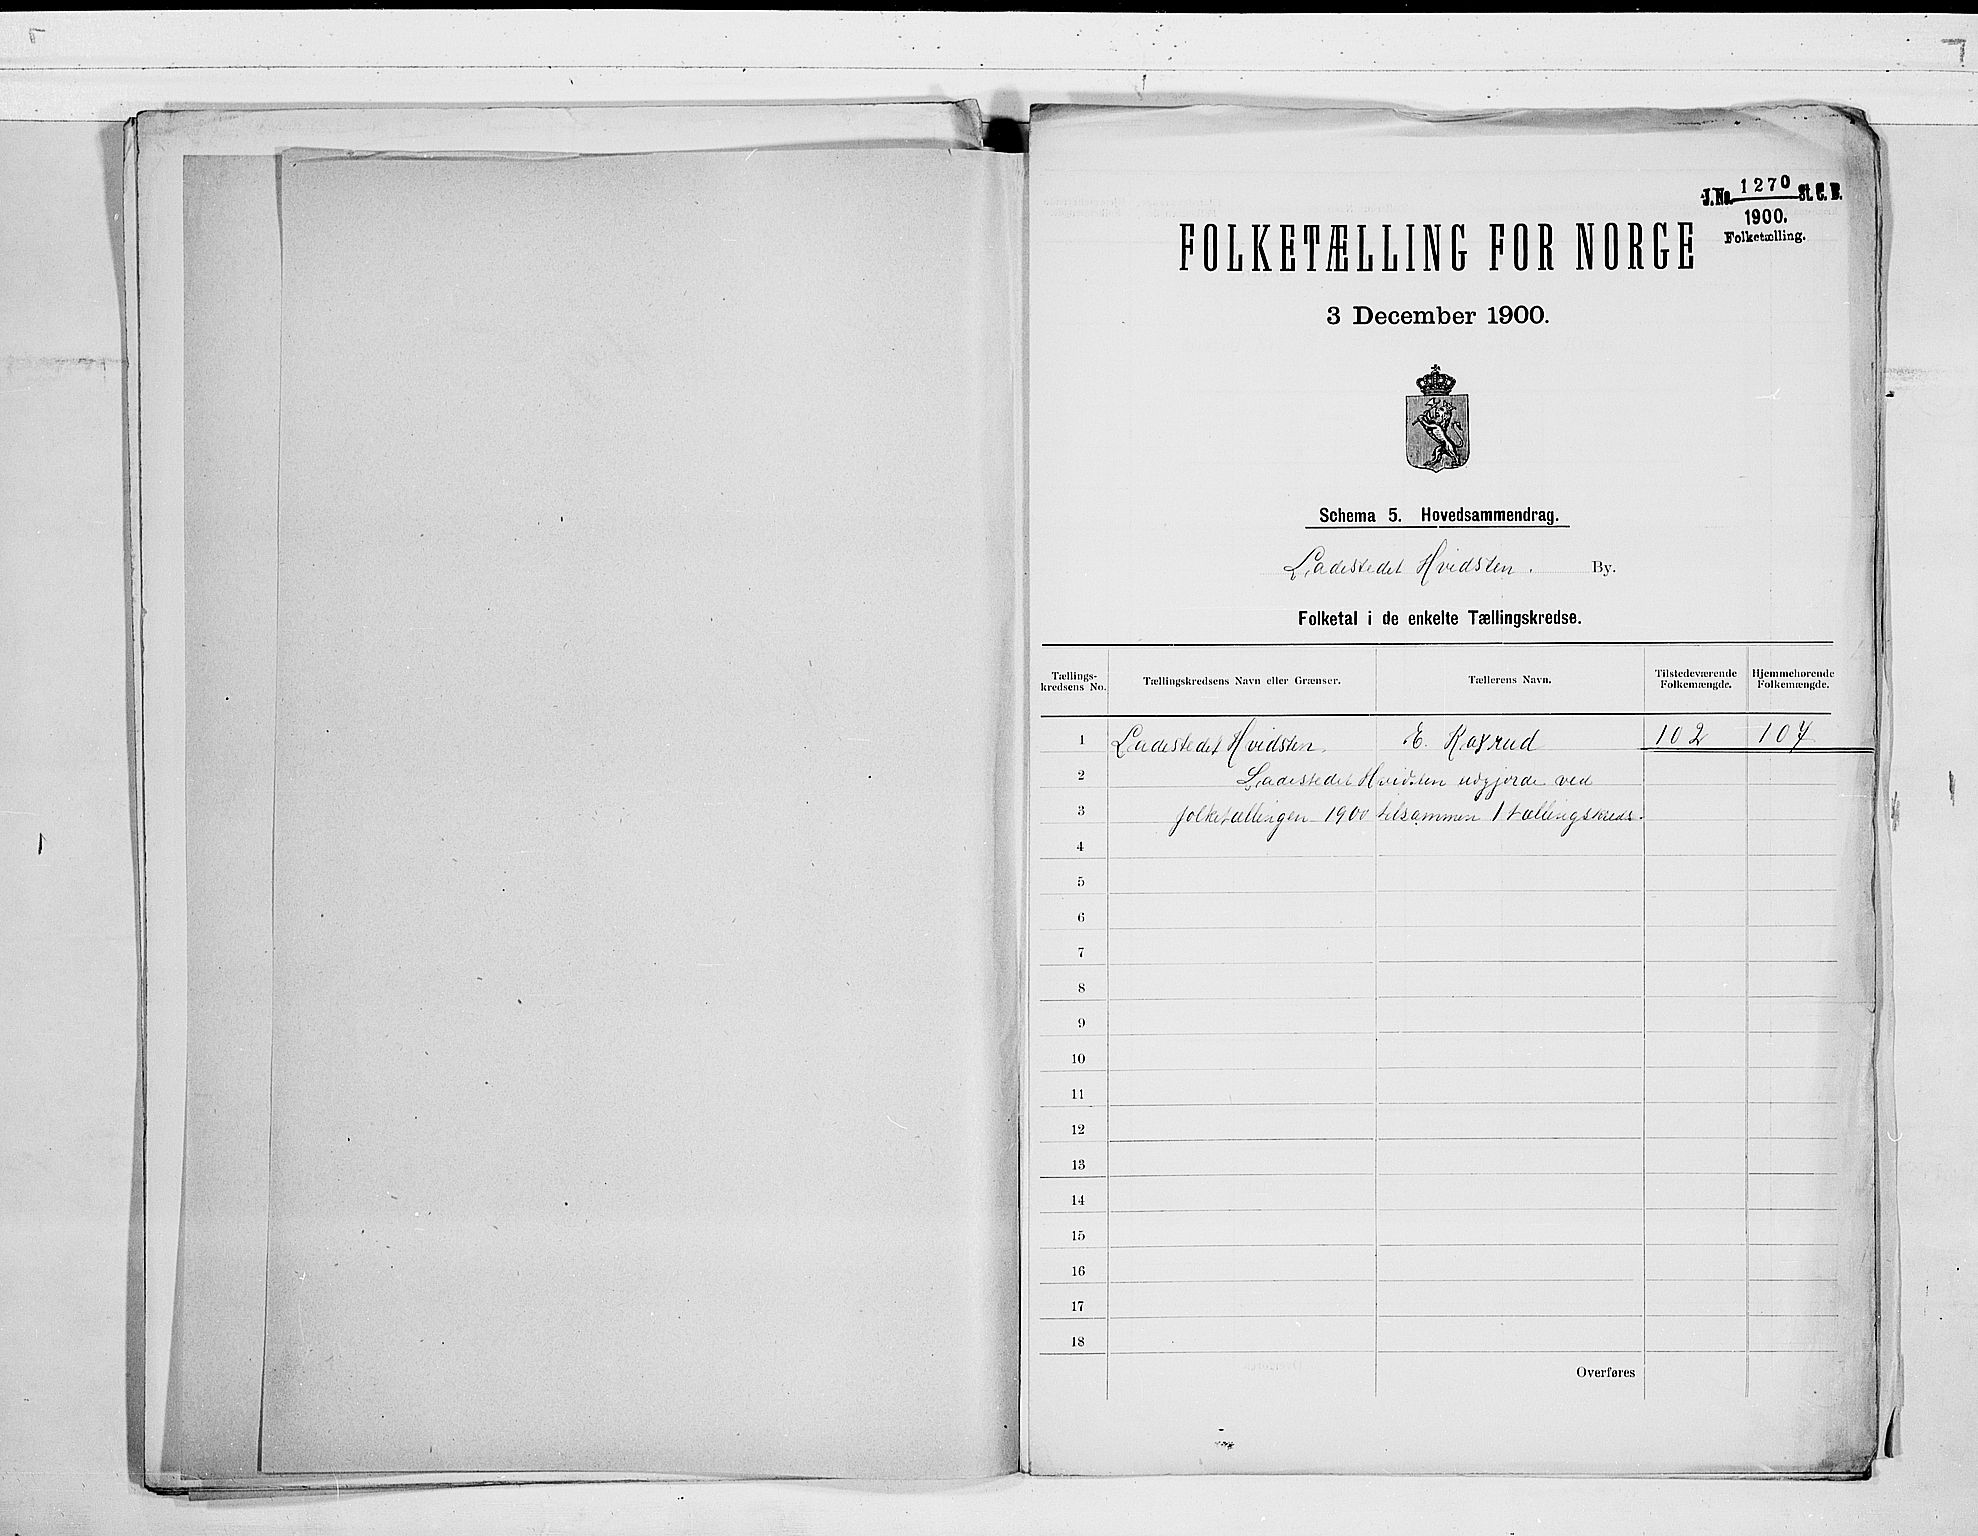 J.No. 1270 St. C. B.
1900.
Folketælling.
FOLKETÆLLING FOR NORGE
3 December 1900.
Schema 5. Hovedsammendrag.
Ladestedet Hvidsten. By.
Folketal i de enkelte Tællingskredse.
Tællings-kredsens No. Tællingskredsens Navn eller Grænser. Tællerens Navn. Tilstedeværende Folkemængde. Hjemmehørende Folkemængde.
1 Ladestedet Hvidsten. E. 102 107
2 Ladestedet Hvidsten udgjorde ved
3 folketællingen 1900 tilsammen 1 tællingskreds.
4
5
6
7
8
9
10
11
12
13
14
15
16
17
18
Overføres